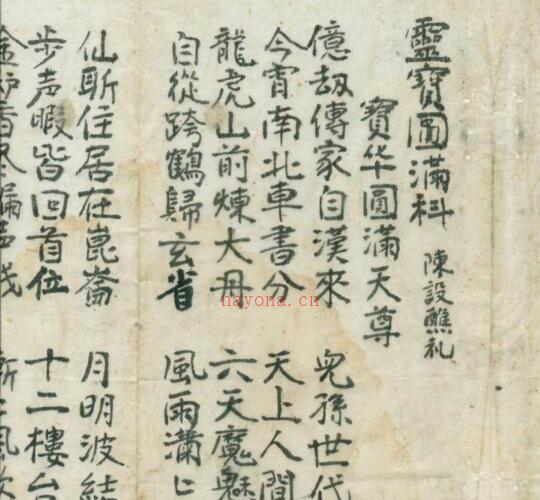 靈寶圓滿科 陳設醮礼
寶华圓滿天尊
億劫傳家自漢來 兒孫世代
今宵南北車書分 天上人間
龍虎山前煉大丹 六天魔魅
自從跨鶴歸玄省 風雨瀟
仙斾住居在崑崙 月明波結
步声暇皆回首位 十二樓台
hayona.cn